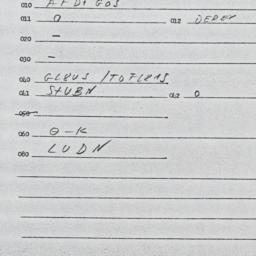 010 AFDTGOS
011 0 012 DEREK
020 —
030 —
040 GLEUS /TOFLEMS
041 STUBN 042 0
050
060 O-K
080 LUDN